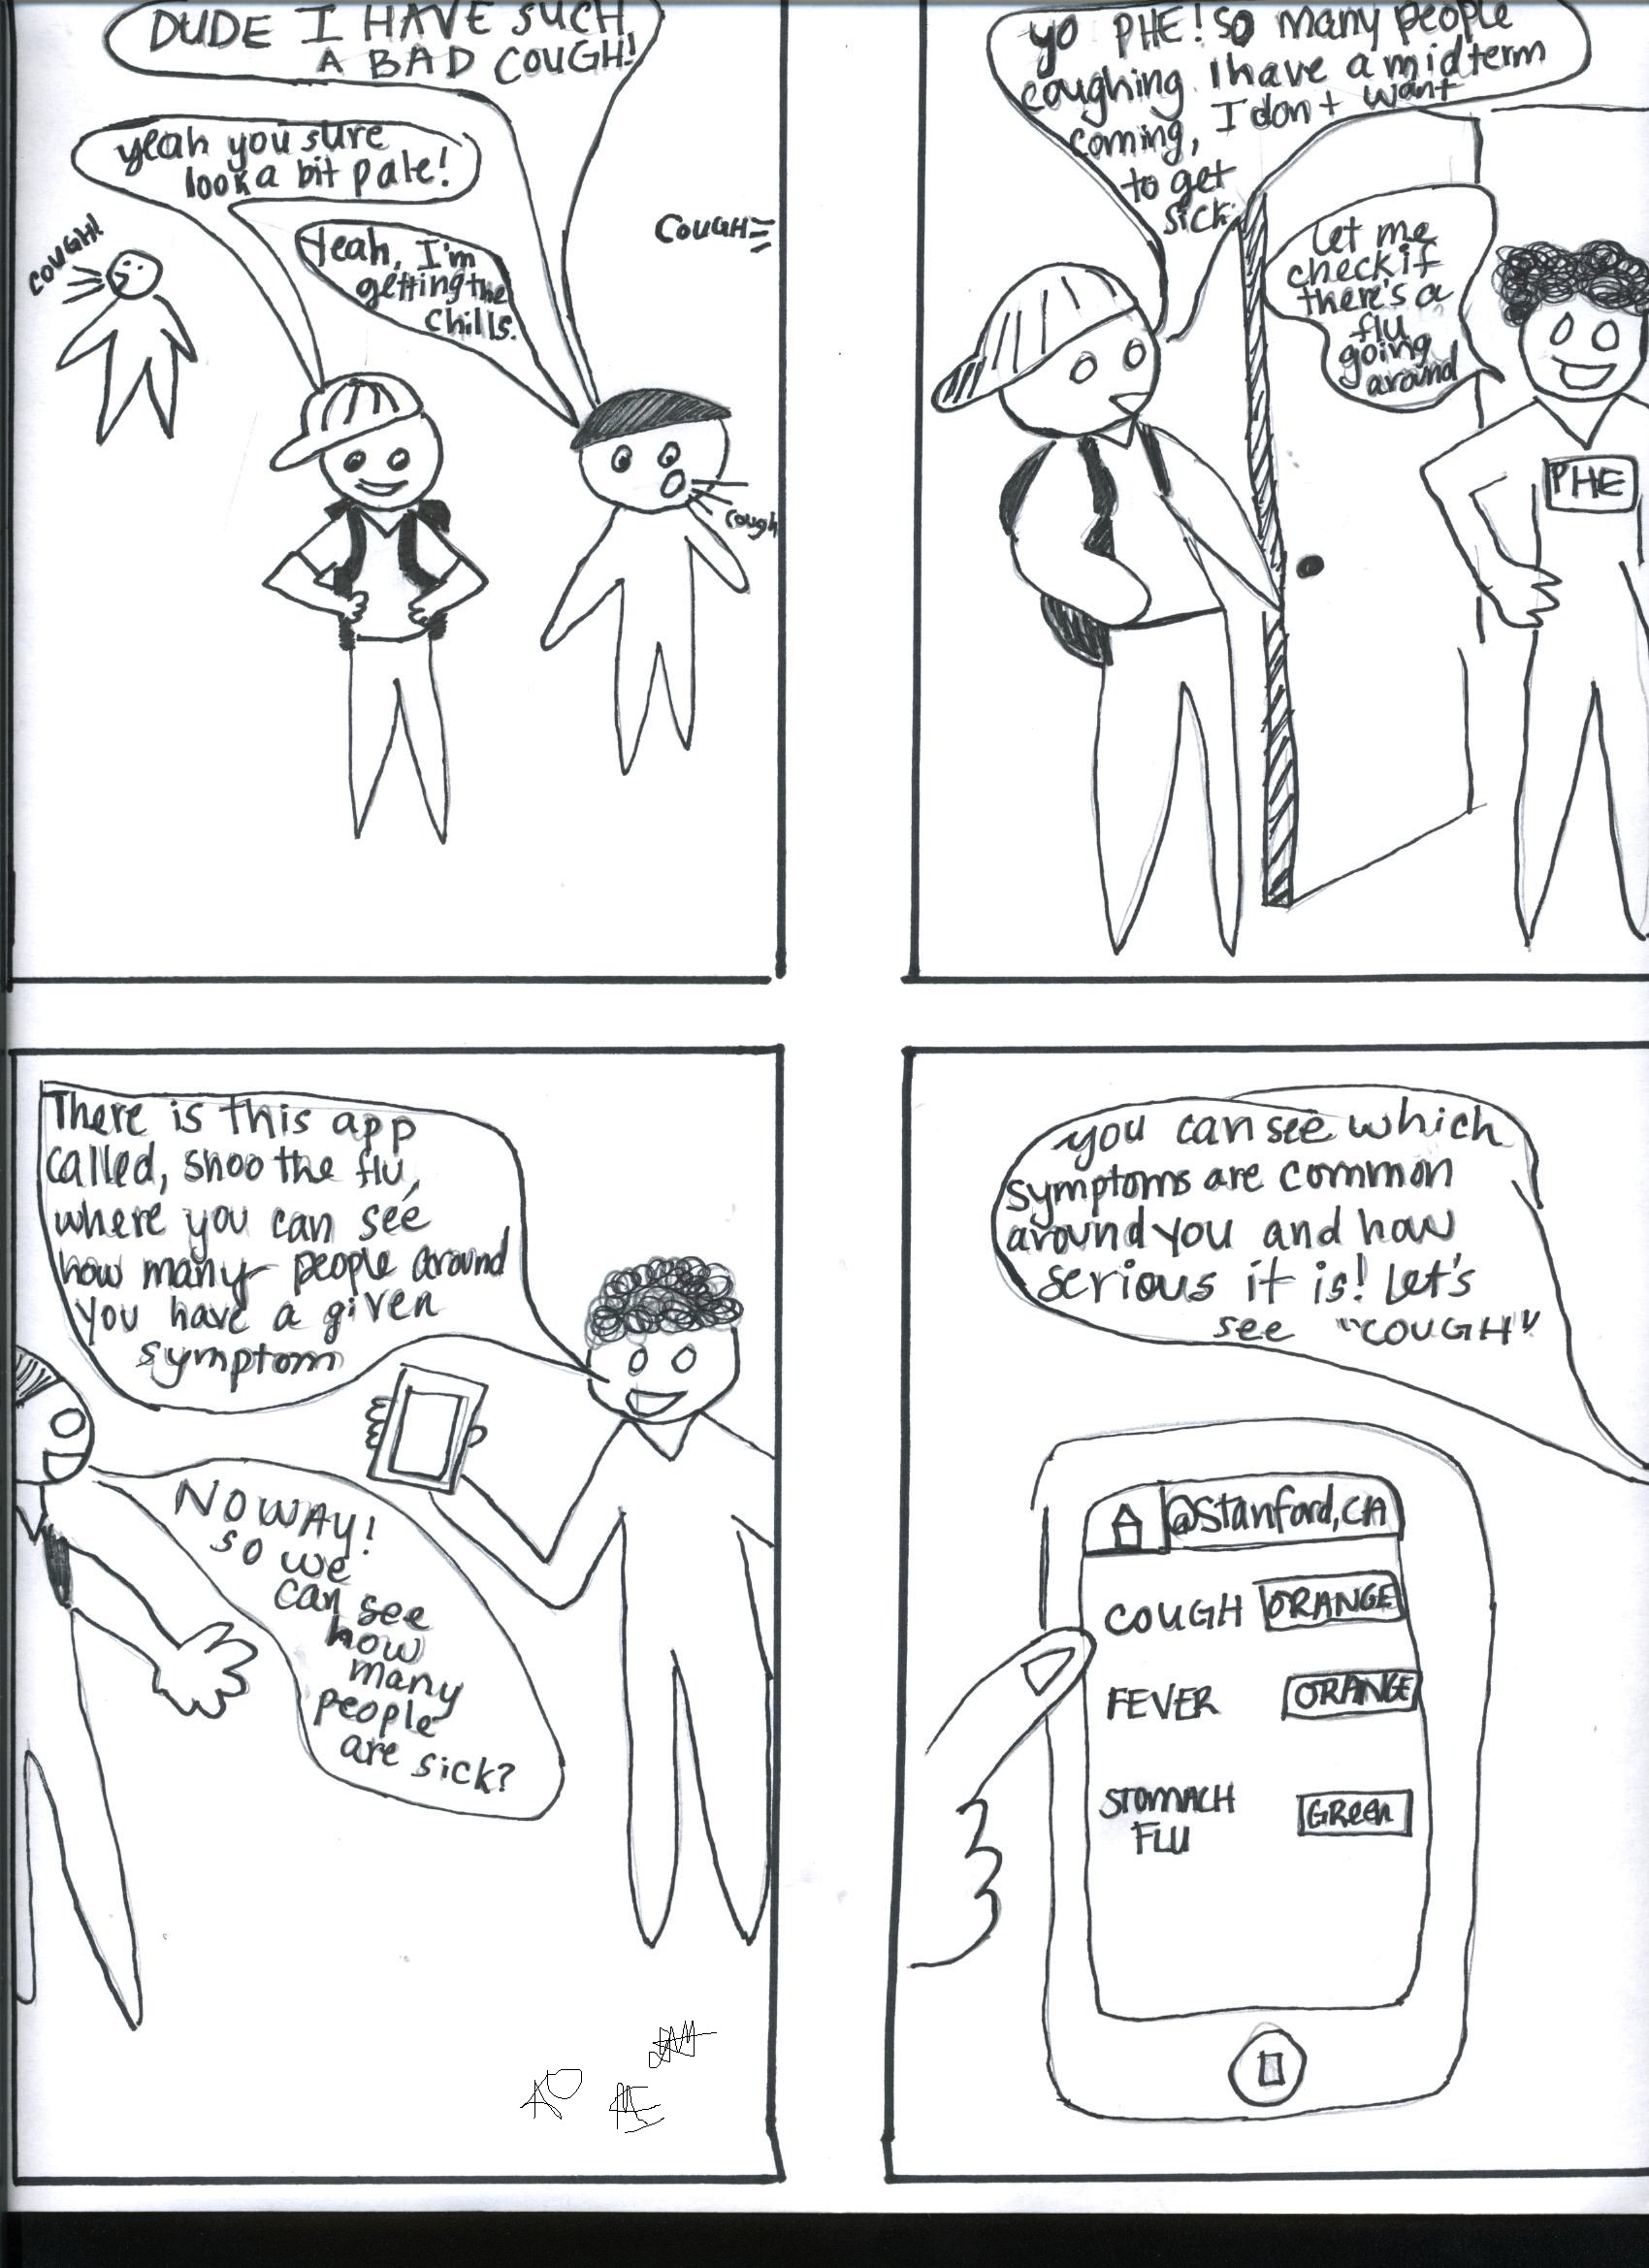 DUDE I HAVE SUCH
A BAD COUGH!
yeah you sure
look a bit pale!
COUGH!!
Yeah, I'm
getting the
chills.
COUGH
cough
yo PHE! so many people
coughing. I have a midterm
coming, I don't want
to get
sick.
let me
check if
there's a
flu
going
around
PHE
There is this app
called, shoo the flu,
where you can see
how many people around
you have a given
symptom
NO WAY!
so we
can see
how
many
people
are sick?
you can see which
symptoms are common
around you and how
serious it is! Let's
see "COUGH"
@Stanford, CA
COUGH ORANGE
FEVER ORANGE
STOMACH
FLU GREEN